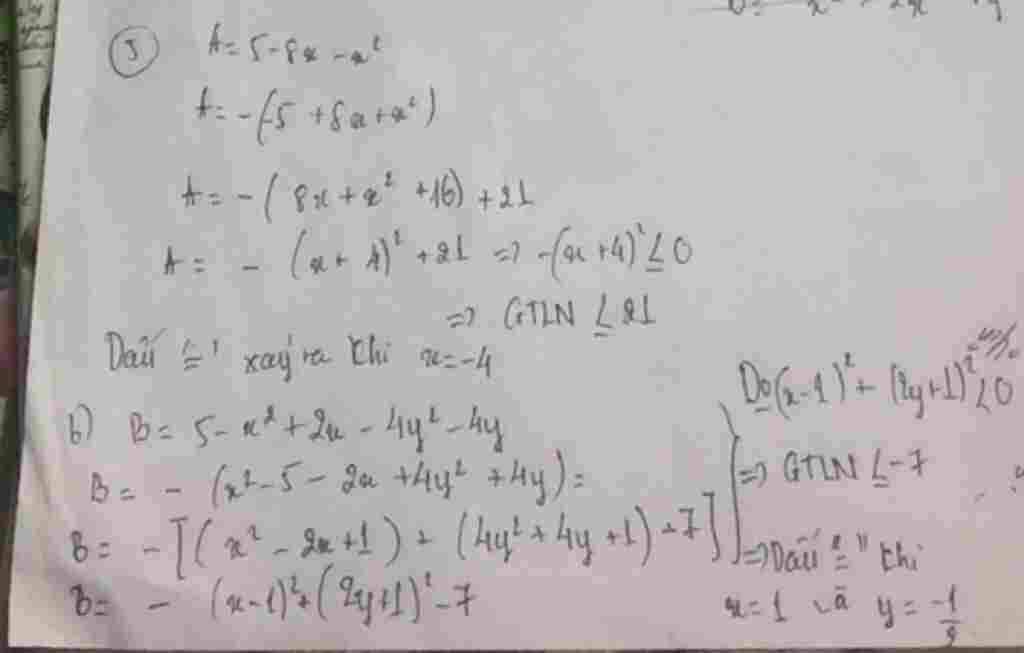 5 A = 5 - 8x - x²
A = -(-5 + 8x + x²)
A = -(8x + x² + 16) + 21
A = - (x + 4)² + 21 => -(x + 4)² ≤ 0
=> GTLN ≤ 21
Dấu "=" xảy ra khi x = -4
b) B = 5 - x² + 2x - 4y² - 4y
B = - (x² - 5 - 2x + 4y² + 4y) =
B = - [(x² - 2x + 1) + (4y² + 4y + 1) - 7]
B = - (x - 1)² + (2y + 1)² - 7
Do (x - 1)² + (2y + 1)² ≤ 0
=> GTLN ≤ -7
=> Dấu "=" khi
x = 1 và y = -1/2